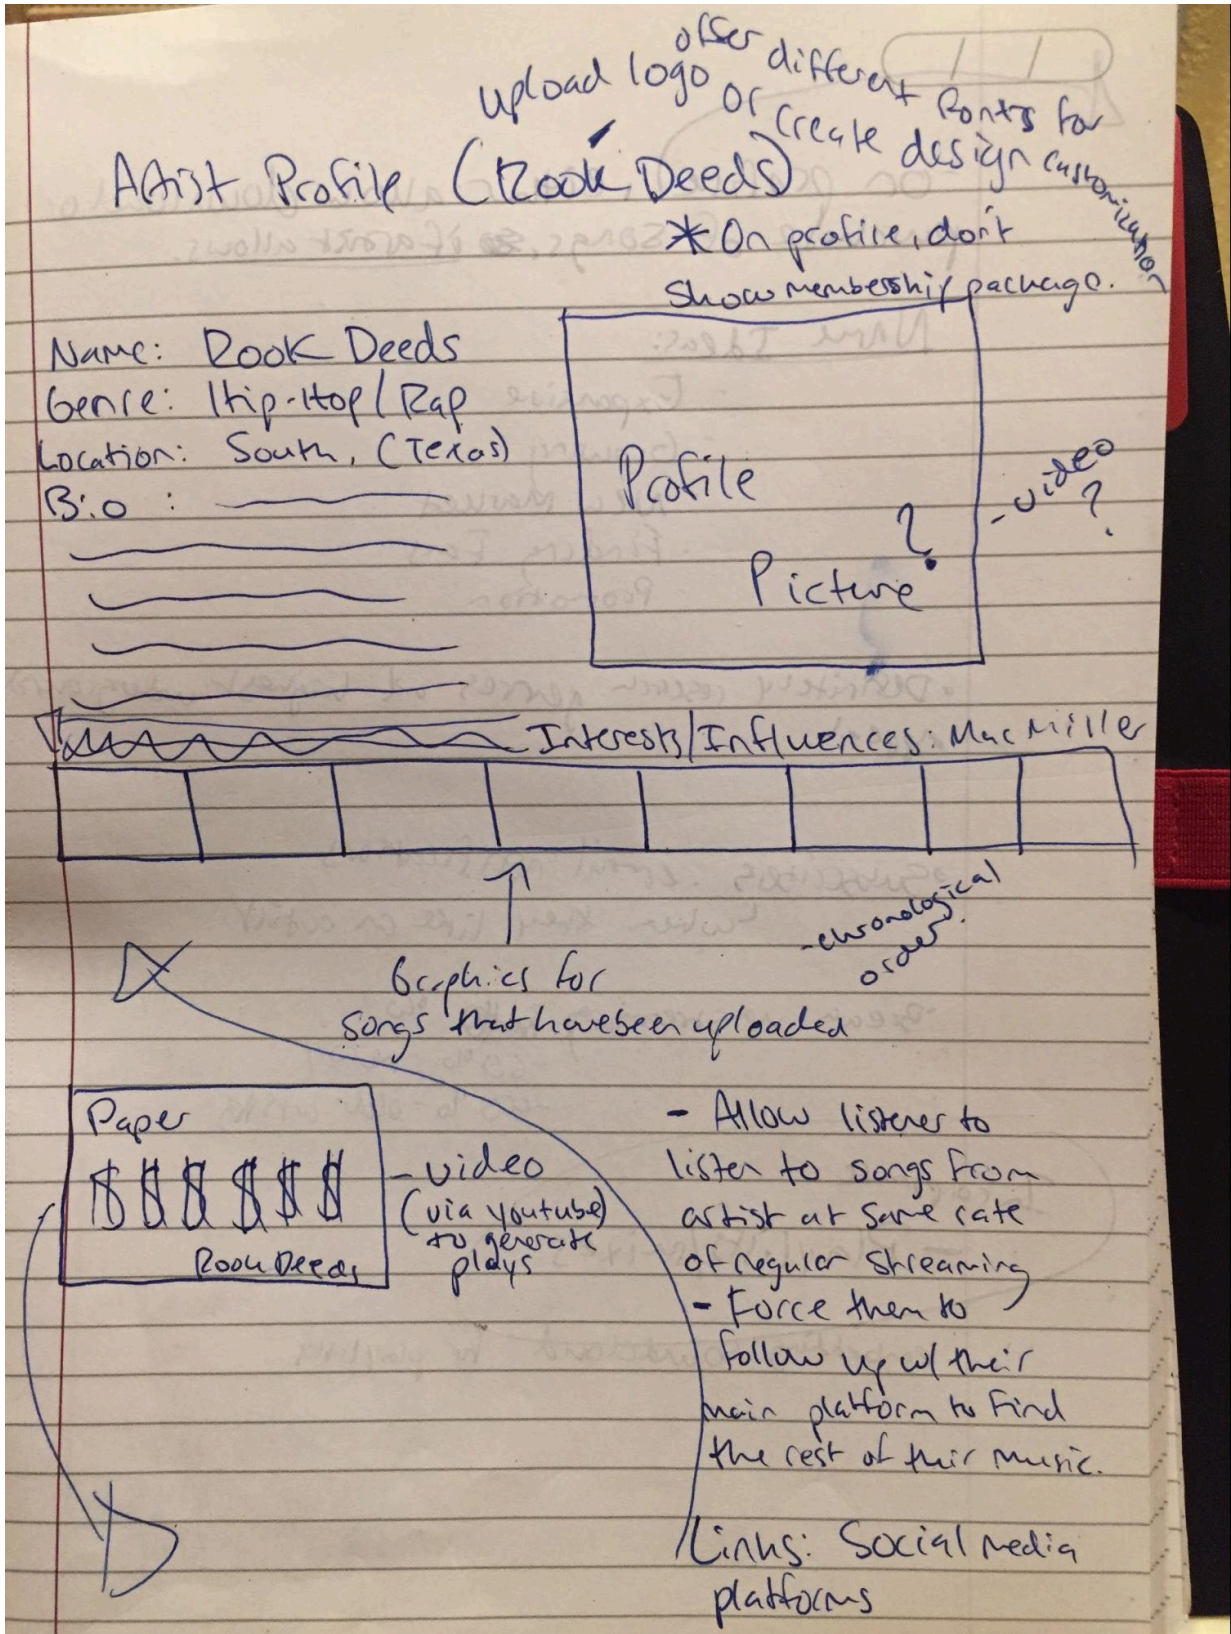 upload logo or create design
offer different fonts for customization
Artist Profile (Rook Deeds)
* On profile, don't
show membership package.
Name: Rook Deeds
Genre: Hip-Hop/Rap
Location: South, (Texas)
Bio :
Profile
Picture?
- video
?
Interests/Influences: Mac Miller
Graphics for
songs that have been uploaded
- chronological
order.
Paper
$ $ $ $ $ $
Rook Deeds
- video
(via youtube)
to generate
plays
- Allow listener to
listen to songs from
artist at same rate
of regular streaming
- Force them to
follow up w/ their
main platform to find
the rest of their music.
Links: Social media
platforms